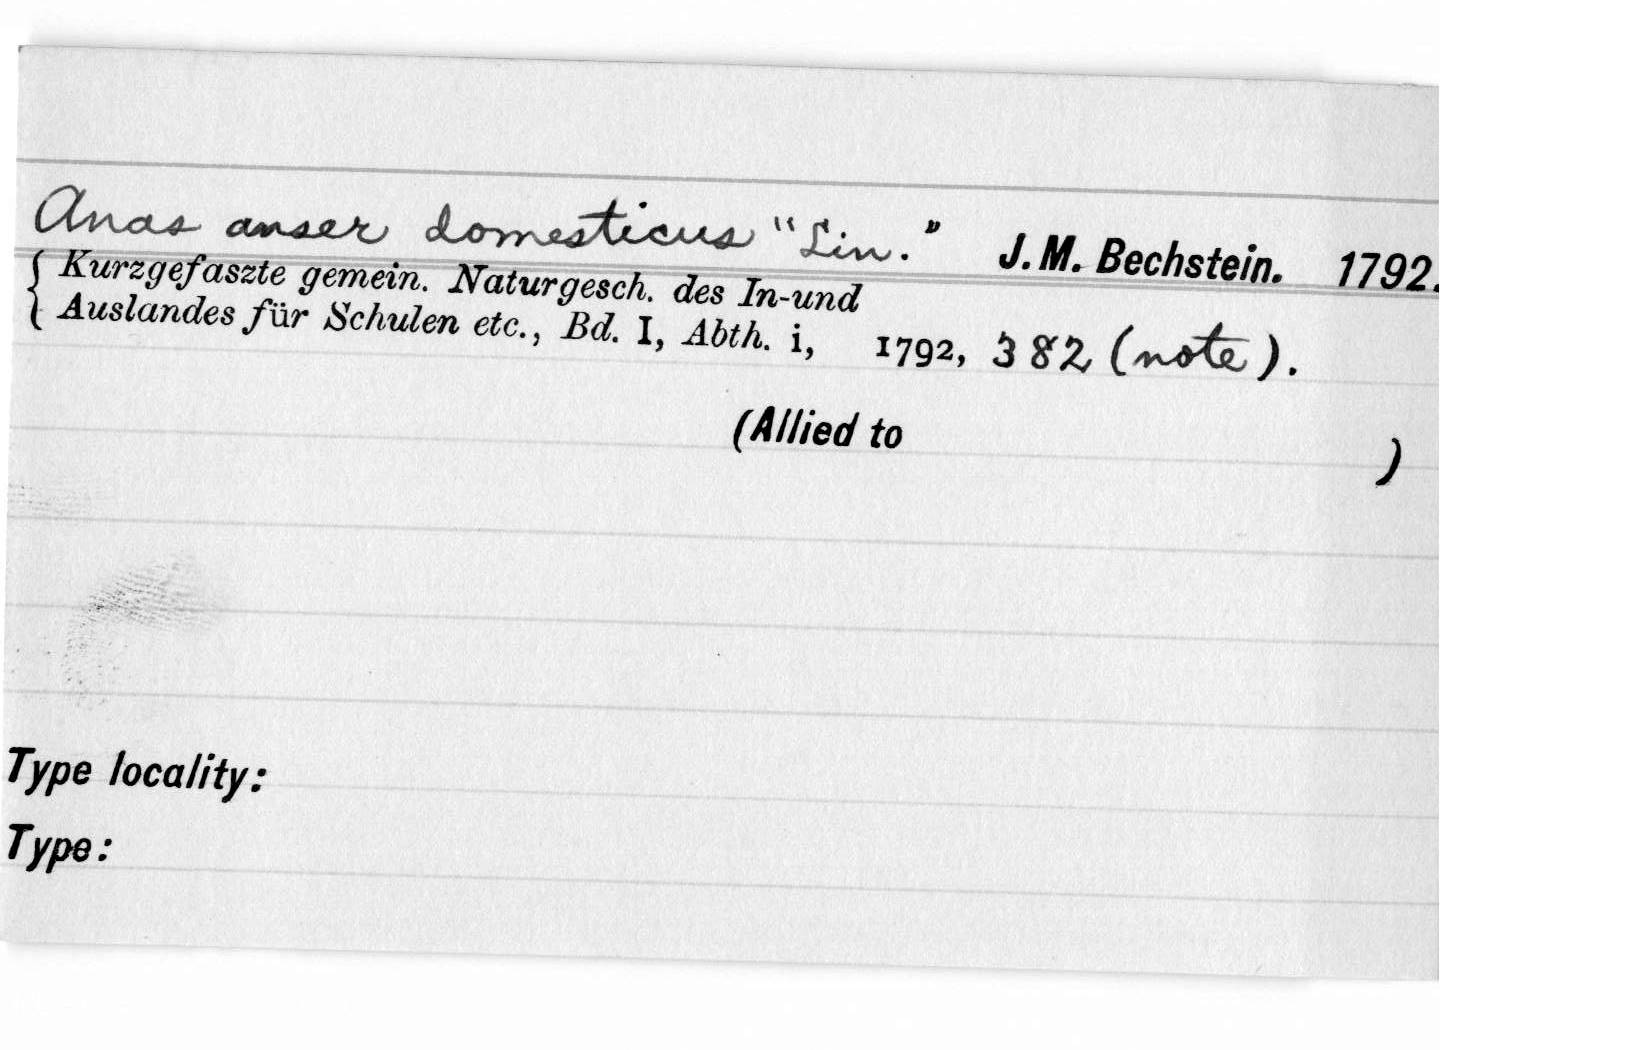 Anas anser domesticus "Lin." J. M. Bechstein. 1792.
Kurzgefaszte gemein. Naturgesch. des In-und
Auslandes für Schulen etc., Bd. I, Abth. i, 1792, 382 (note).
(Allied to )
Type locality:
Type: